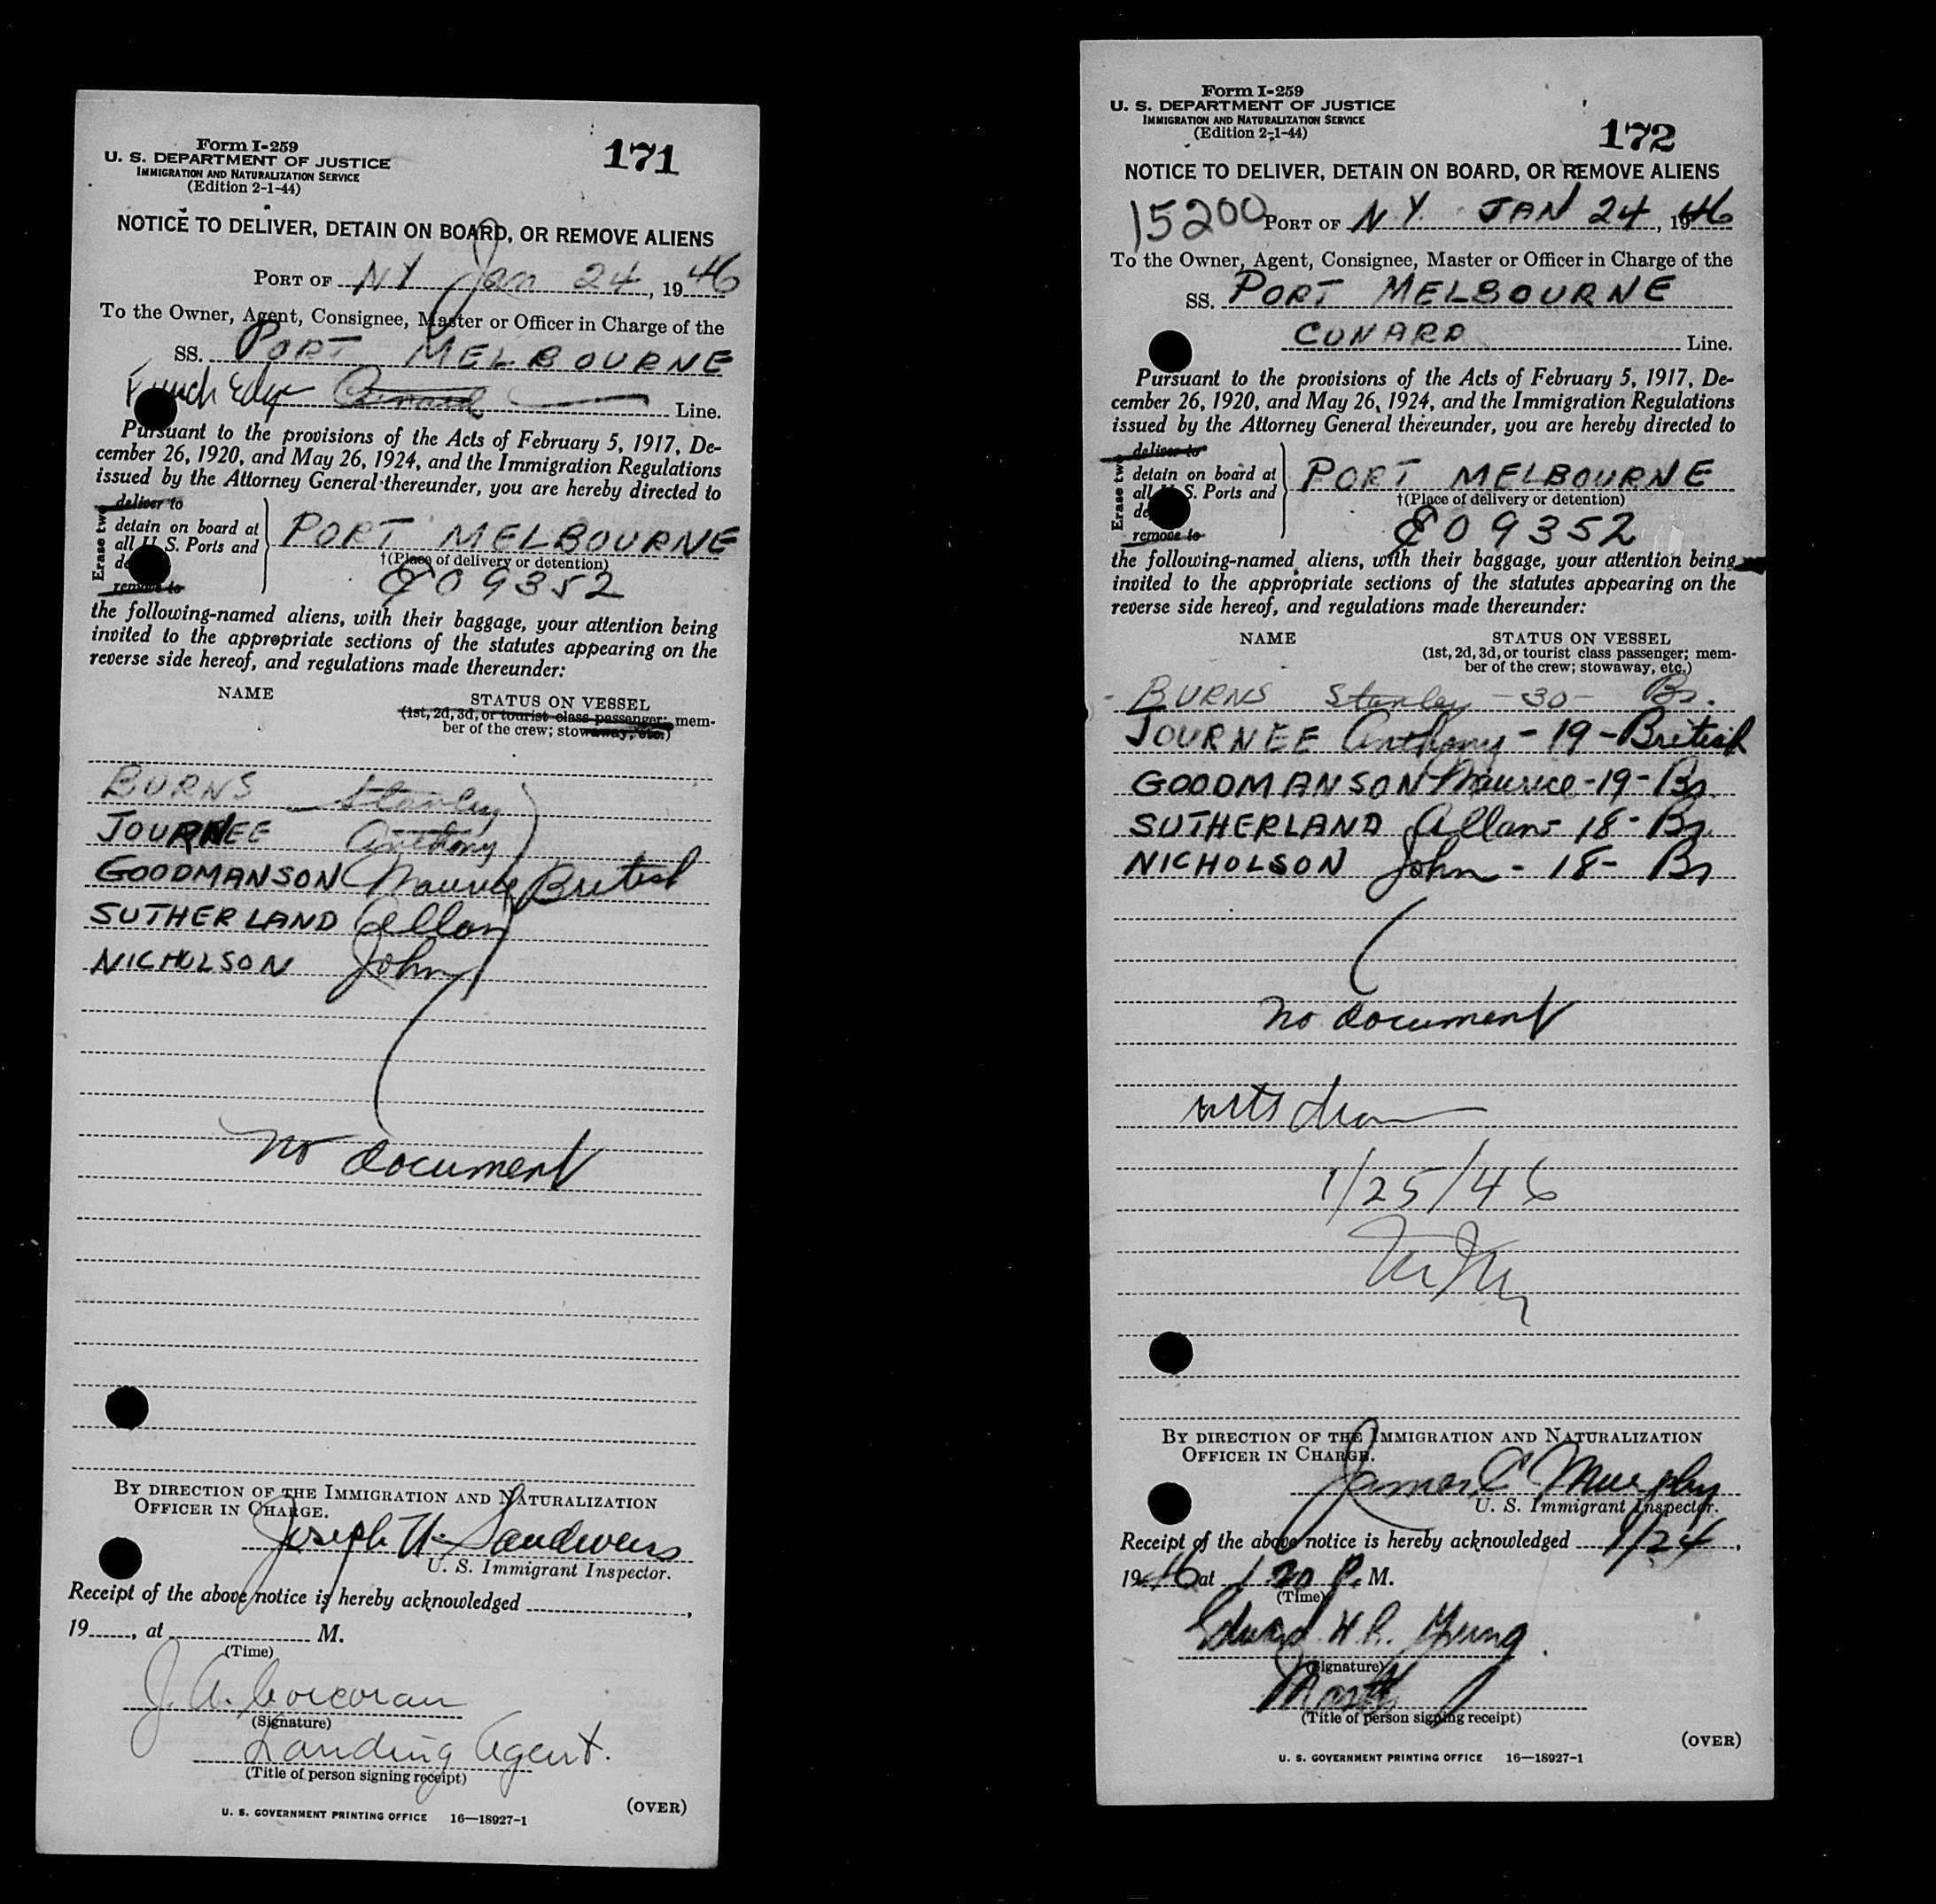 Form I-259
U. S. DEPARTMENT OF JUSTICE
IMMIGRATION AND NATURALIZATION SERVICE
(Edition 2-1-44)
171
NOTICE TO DELIVER, DETAIN ON BOARD, OR REMOVE ALIENS
PORT OF NY Jan 24, 1946
To the Owner, Agent, Consignee, Master or Officer in Charge of the
SS. PORT MELBOURNE
Furness Cunard Line.
Pursuant to the provisions of the Acts of February 5, 1917, De-
cember 26, 1920, and May 26, 1924, and the Immigration Regulations
issued by the Attorney General thereunder, you are hereby directed to
Erase two
deliver to
detain on board at
all U. S. Ports and
remove to
PORT MELBOURNE
†(Place of delivery or detention)
E09352
the following-named aliens, with their baggage, your attention being
invited to the appropriate sections of the statutes appearing on the
reverse side hereof, and regulations made thereunder:
NAME
STATUS ON VESSEL
(1st, 2d, 3d, or tourist class passenger; mem-
ber of the crew; stowaway, etc.)
BURNS Stanley
JOURNEE Anthony
GOODMANSON Maurice British
SUTHERLAND Allan
NICHOLSON John
no document
BY DIRECTION OF THE IMMIGRATION AND NATURALIZATION
OFFICER IN CHARGE.
Joseph
U. S. Immigrant Inspector.
Receipt of the above notice is hereby acknowledged
19 , at M.
(Time)
J. A. Corcoran
(Signature)
Landing Agent.
(Title of person signing receipt)
(OVER)
U. S. GOVERNMENT PRINTING OFFICE 16—18927-1
Form I-259
U. S. DEPARTMENT OF JUSTICE
IMMIGRATION AND NATURALIZATION SERVICE
(Edition 2-1-44)
172
NOTICE TO DELIVER, DETAIN ON BOARD, OR REMOVE ALIENS
15200 PORT OF N Y. JAN 24, 1946
To the Owner, Agent, Consignee, Master or Officer in Charge of the
SS. PORT MELBOURNE
CUNARD Line.
Pursuant to the provisions of the Acts of February 5, 1917, De-
cember 26, 1920, and May 26, 1924, and the Immigration Regulations
issued by the Attorney General thereunder, you are hereby directed to
Erase two
deliver to
detain on board at
all U. S. Ports and
remove to
PORT MELBOURNE
†(Place of delivery or detention)
E09352
the following-named aliens, with their baggage, your attention being
invited to the appropriate sections of the statutes appearing on the
reverse side hereof, and regulations made thereunder:
NAME
STATUS ON VESSEL
(1st, 2d, 3d, or tourist class passenger; mem-
ber of the crew; stowaway, etc.)
BURNS Stanley - 30 - Br.
JOURNEE Anthony - 19 - British
GOODMANSON Maurice - 19 - Br.
SUTHERLAND Allan - 18 - Br.
NICHOLSON John - 18 - Br
no document
1/25/46
BY DIRECTION OF THE IMMIGRATION AND NATURALIZATION
OFFICER IN CHARGE.
James C Murphy
U. S. Immigrant Inspector.
Receipt of the above notice is hereby acknowledged 1/24,
1946 at 1 20 P. M.
(Time)
Edward H. R.
(Signature)
(Title of person signing receipt)
(OVER)
U. S. GOVERNMENT PRINTING OFFICE 16—18927-1